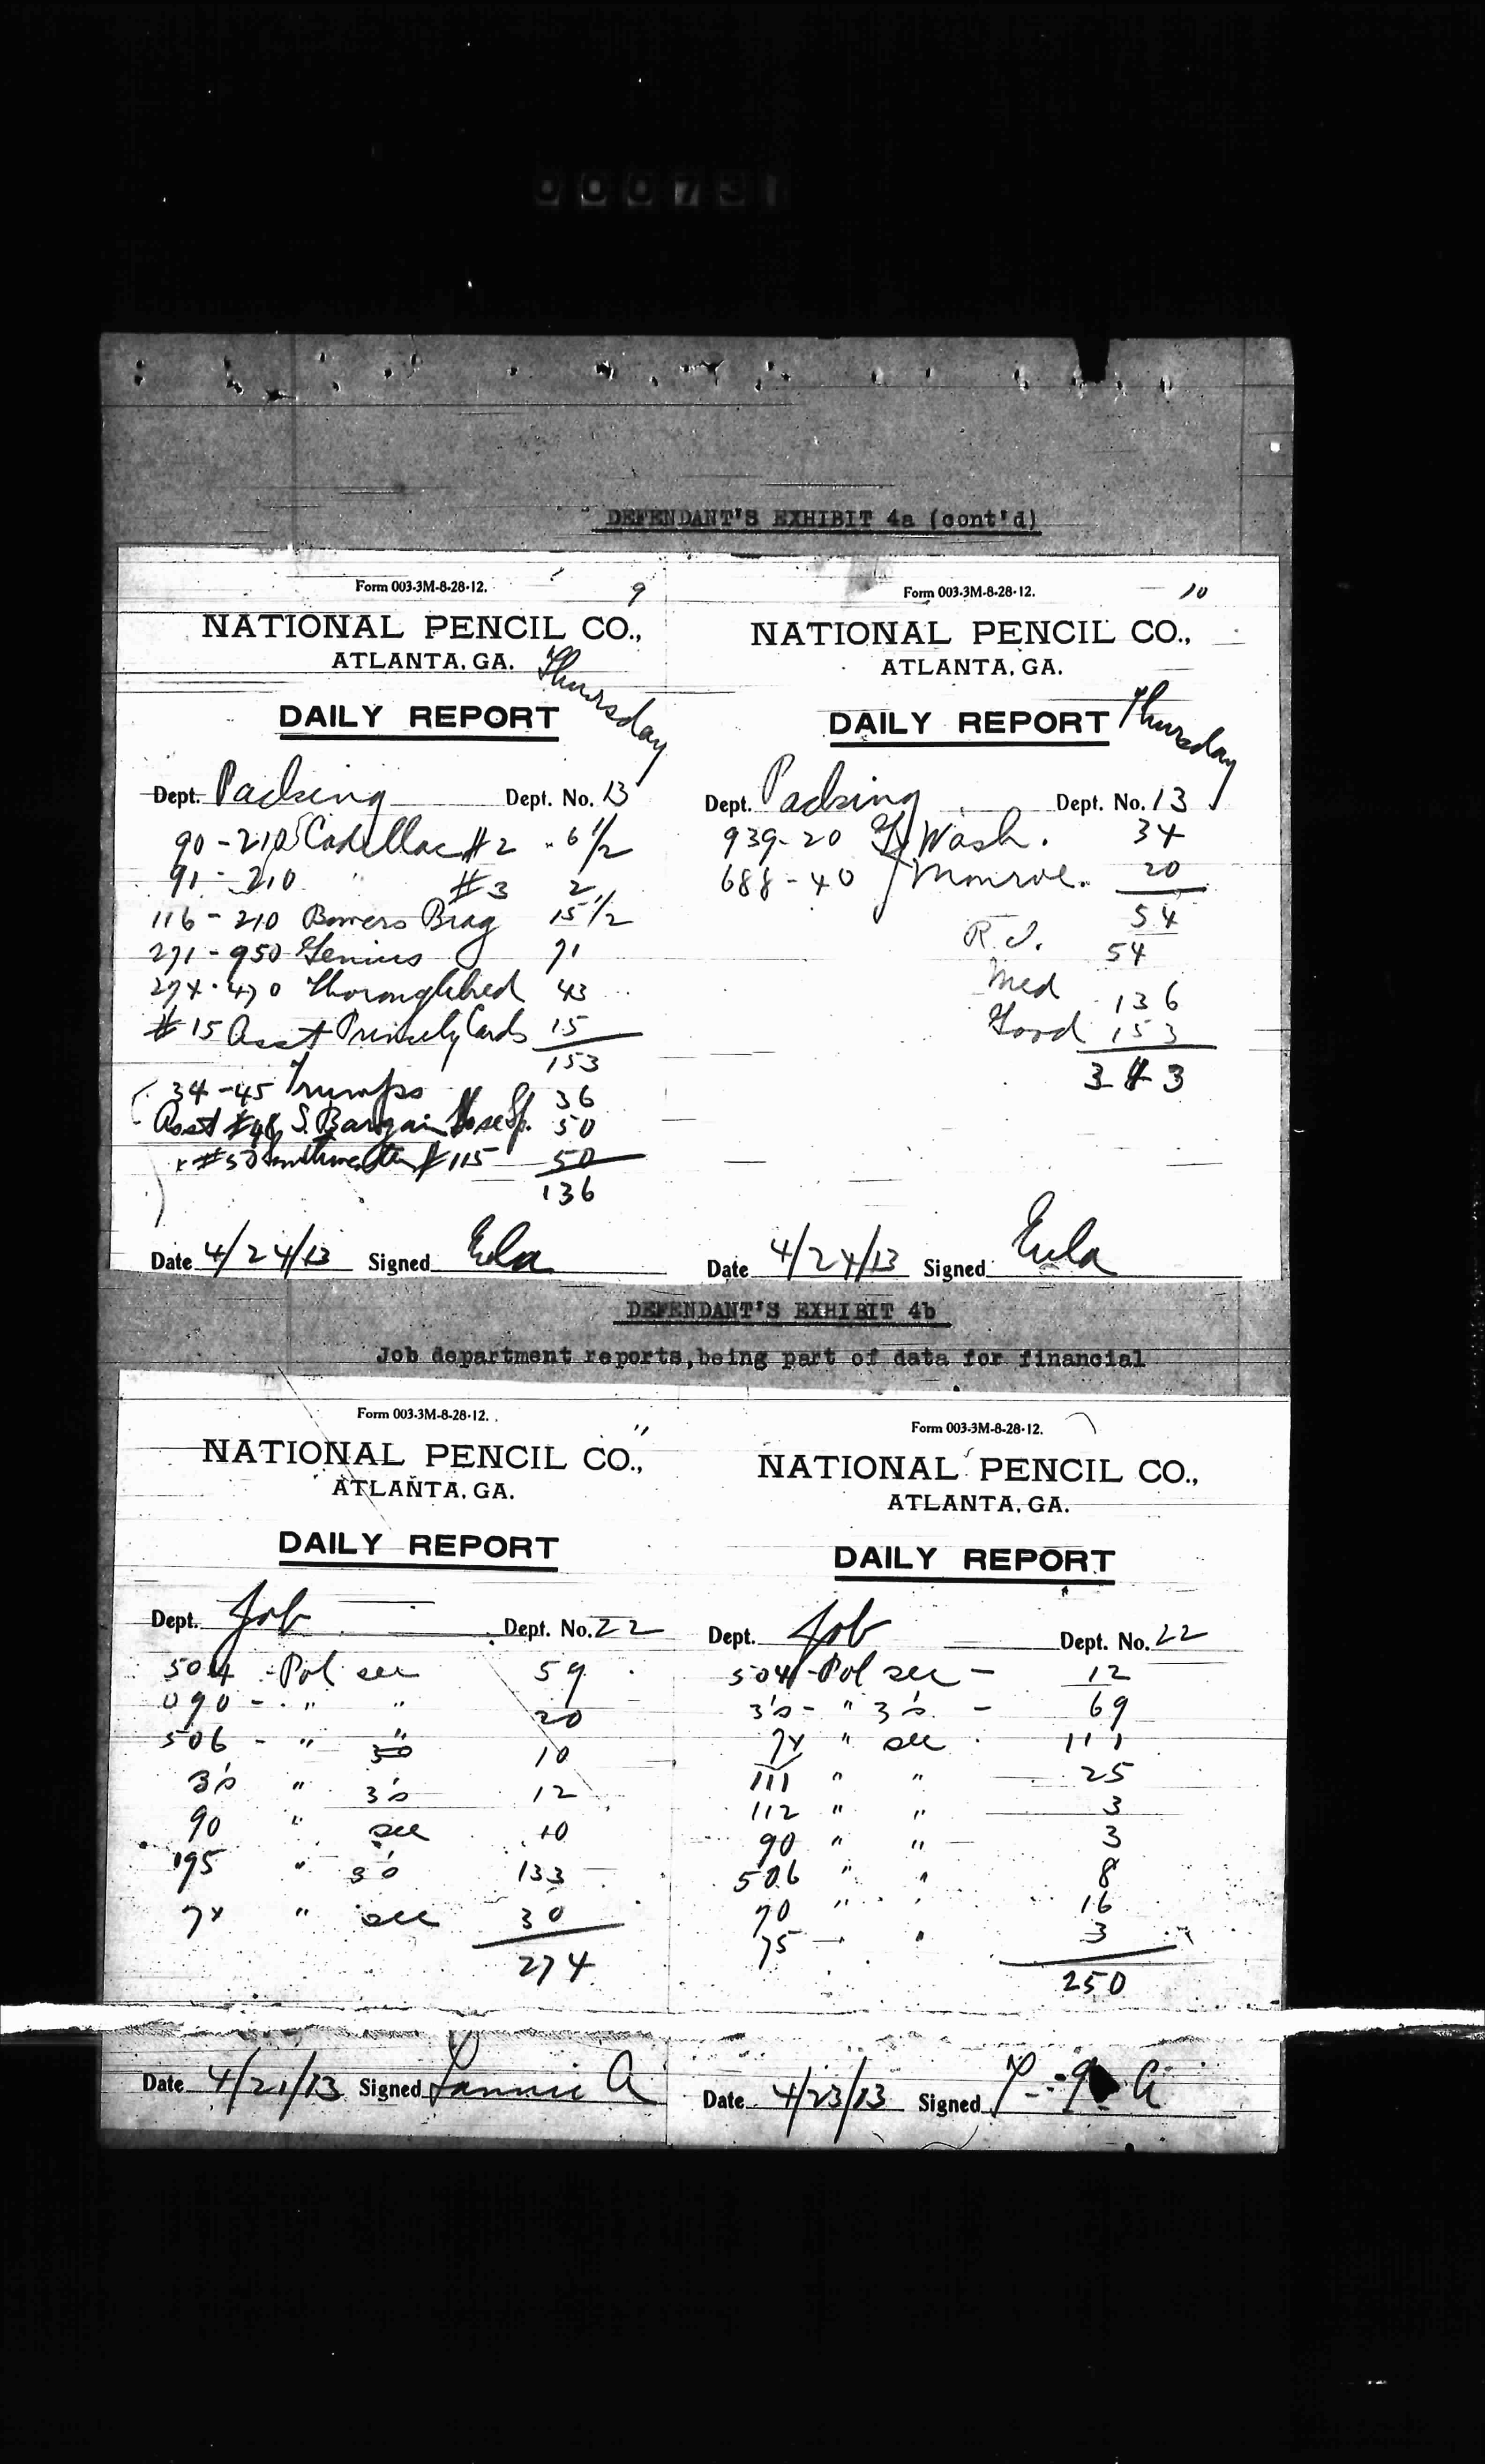 000731
DEFENDANT'S EXHIBIT 4a (cont'd)
Form 003-3M-8-28-12. 9
NATIONAL PENCIL CO.,
ATLANTA, GA. Thursday
DAILY REPORT
Dept. Packing Dept. No. 13
90-210 Cadillac #2 6 1/2
91-210 " #3 2
116-210 Bowers Brag 15 1/2
271-950 Genius 71
274-470 Thoroughbred 43
#15 Asst Cards 15
153
34-45 Trumps 36
Asst #48 S. Bargain 50
#50 #115 50
136
Date 4/24/13 Signed Eula
Form 003-3M-8-28-12. 10
NATIONAL PENCIL CO.,
ATLANTA, GA.
DAILY REPORT Thursday
Dept. Packing Dept. No. 13
939-20 G. Wash. 34
688-40 J Monroe. 20
54
R. I. 54
Med 136
Good 153
343
Date 4/24/13 Signed Eula
DEFENDANT'S EXHIBIT 4b
Job department reports, being part of data for financial
Form 003-3M-8-28-12. 11
NATIONAL PENCIL CO.,
ATLANTA, GA.
DAILY REPORT
Dept. Job Dept. No. 22
504 - Pol sec 59
090 - " " 20
506 - " " 10
3's " 3's 12
90 " sec 10
195 " 3's 133
7x " sec 30
274
Date 4/21/13 Signed Fannie A
Form 003-3M-8-28-12.
NATIONAL PENCIL CO.,
ATLANTA, GA.
DAILY REPORT
Dept. Job Dept. No. 22
504 - Pol sec - 12
3's - " 3's - 69
7x " sec 111
111 " " 25
112 " " 3
90 " " 3
506 " " 8
70 " " 16
75 - " 3
250
Date 4/23/13 Signed A